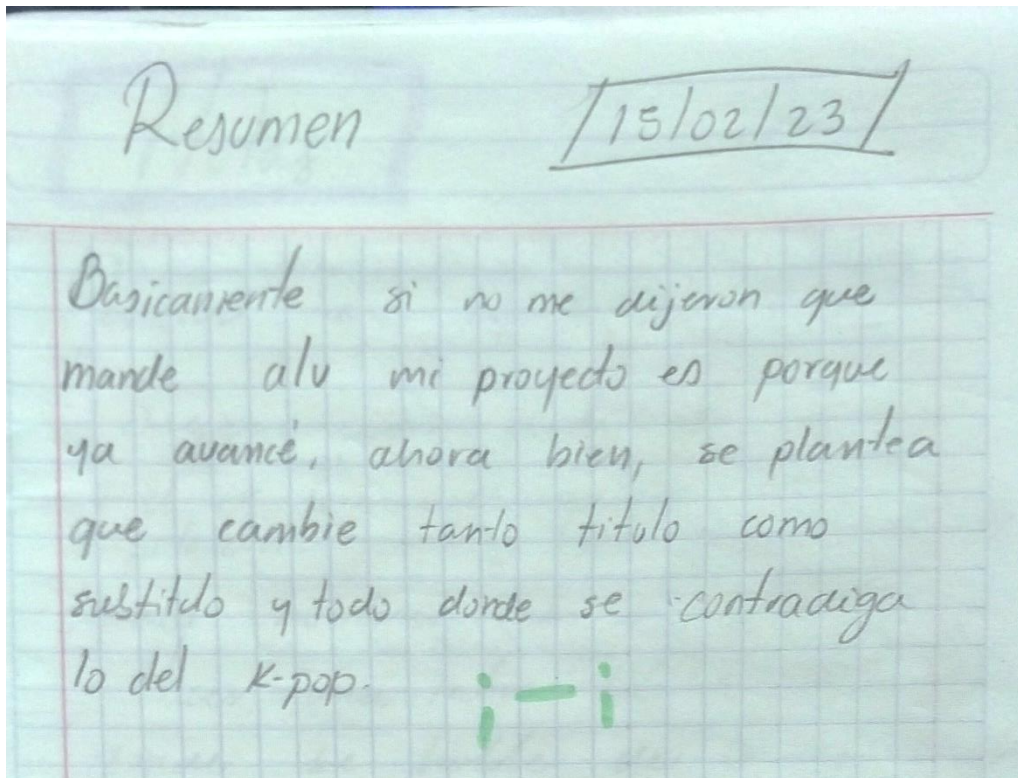 Resumen /15/02/23/
Basicamente si no me dijeron que
mande alv mi proyecto es porque
ya avancé, ahora bien, se plantea
que cambie tanto titulo como
sustitulo y todo donde se contradiga
lo del K-pop.
¡-¡